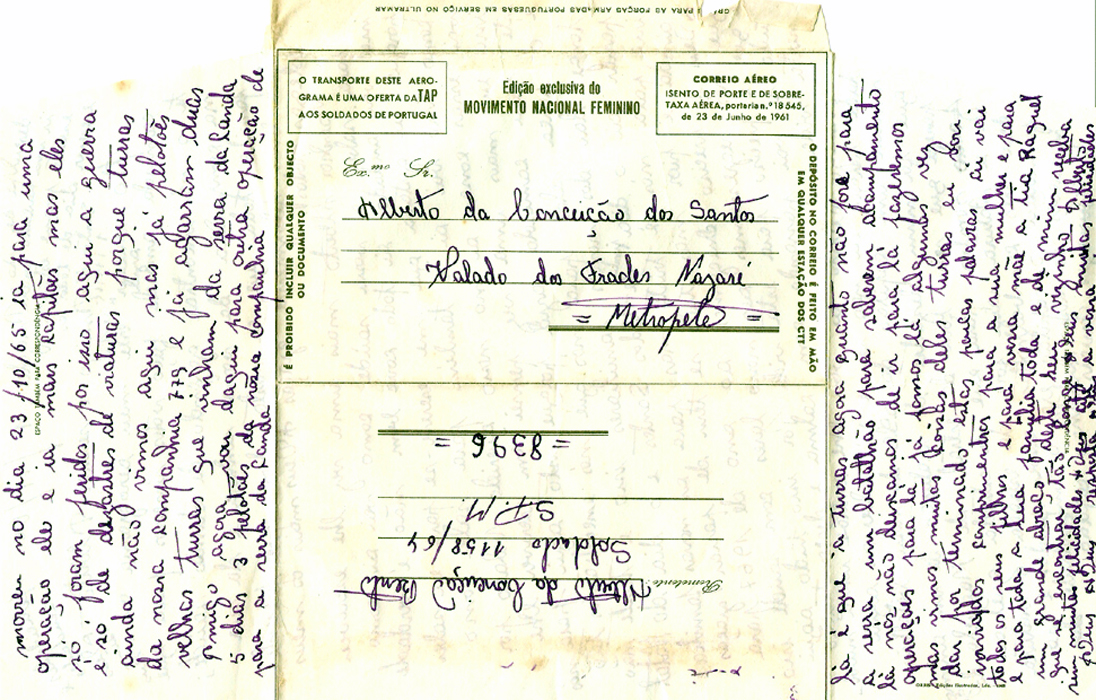 PARA AS FORÇAS ARMADAS PORTUGUESAS EM SERVIÇO NO ULTRAMAR
O TRANSPORTE DESTE AERO-
GRAMA É UMA OFERTA DA TAP
AOS SOLDADOS DE PORTUGAL
Edição exclusiva do
MOVIMENTO NACIONAL FEMININO
CORREIO AÉREO
ISENTO DE PORTE E DE SOBRE-
TAXA AÉREA, portaria n.º 18 545,
de 23 de Junho de 1961
É PROIBIDO INCLUIR QUALQUER OBJECTO
OU DOCUMENTO
O DEPÓSITO NO CORREIO É FEITO EM MÃO
EM QUALQUER ESTAÇÃO DOS CTT
Ex.mo Sr.
Alberto da Conceição dos Santos
Valado dos Frades Nazaré
= Metropele =
Remetente:
Alberto da Conceição Bento
Soldado 1158/64
S.P.M.
= 8396 =
morreu no dia 23/10/65 ia para uma
operação ele e ia mais rapazes mas eles
só foram feridos por isso aqui a guerra
e só de desastres de viaturas porque turras
ainda não vimos aqui mas já pelotões
da nossa companhia 779 e já agarram duas
velhas turras que vinham da serra da Canda
amigo agora vou daqui para outra operação de
5 dias 3 pelotões da nossa companhia
para a serra da Canda
ESPAÇO TAMBÉM PARA CORRESPONDÊNCIA
lá é que à turras agora quanto não fore para
a serra um batalhão para salvarem acampamento
lá nós não descansamos de ir para lá fazermos
operações para lá já fomos lá algumas vez
mas vimos muitas coisas deles turras eu vou
dar por terminado estas poucas palavras ai vai
comprimentos para a sua mulher e para
todos os seus filhos e para vossa mãe a tia Raquel
e para toda a tua família toda e de mim receba
um grande abraço deste seu vizinho Alberto
que se encontra tão longe
um muitas felicidades